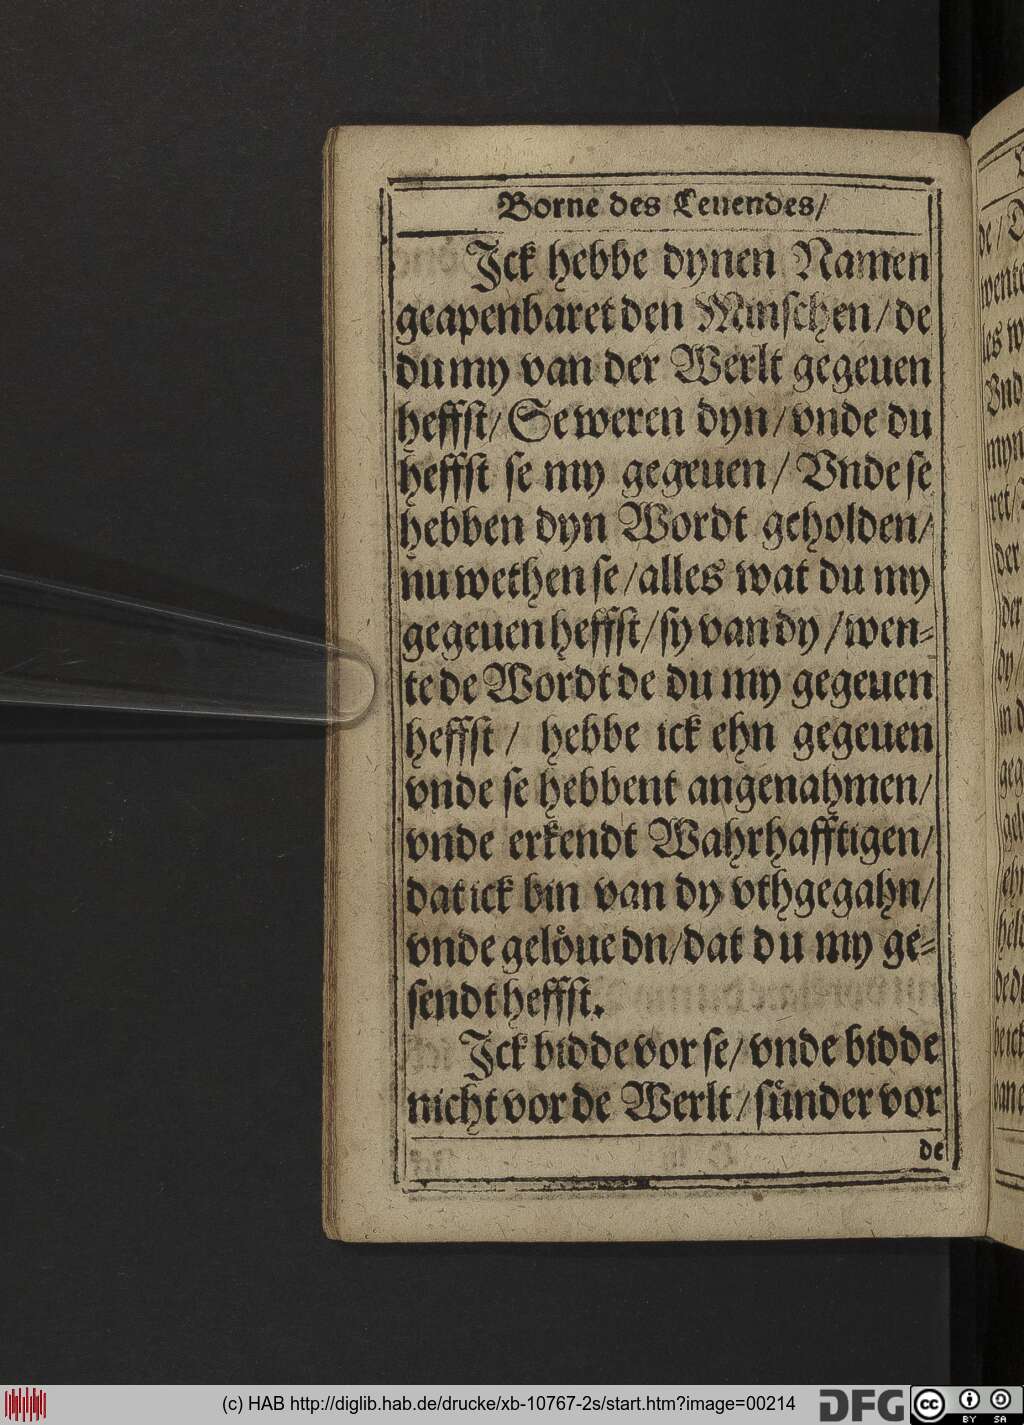 Borne des Leuendes/
Jck hebbe dynen Namen
geapenbaret den Minschen/ de
du my van der Werlt gegeuen
heffst/ Se weren dyn/ vnde du
heffst se my gegeuen/ Vnde se
hebben dyn Wordt geholden/
nu wethen se/ alles wat du my
gegeuen heffst/ sy van dy/ wen⸗
te de Wordt de du my gegeuen
heffst/ hebbe ick ehn gegeuen
vnde se hebbent angenahmen/
vnde erkendt Wahrhafftigen/
dat ick bin van dy vthgegahn/
vnde gelöue dn/ dat du my ge⸗
sendt heffst.
Jck bidde vor se/ vnde bidde
nicht vor de Werlt/ sünder vor
de
(c) HAB http://diglib.hab.de/drucke/xb-10767-2s/start.htm?image=00214
DFG
cc BY SA